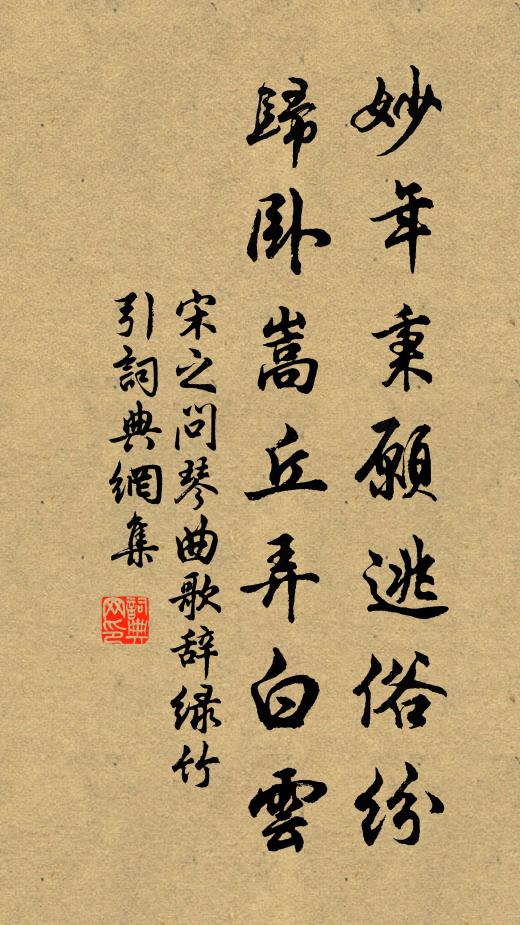 妙年秉願逃俗紛
歸卧嵩丘弄白雲
宋之问琴曲歌辞绿竹
引詞典網集
詞典
网印